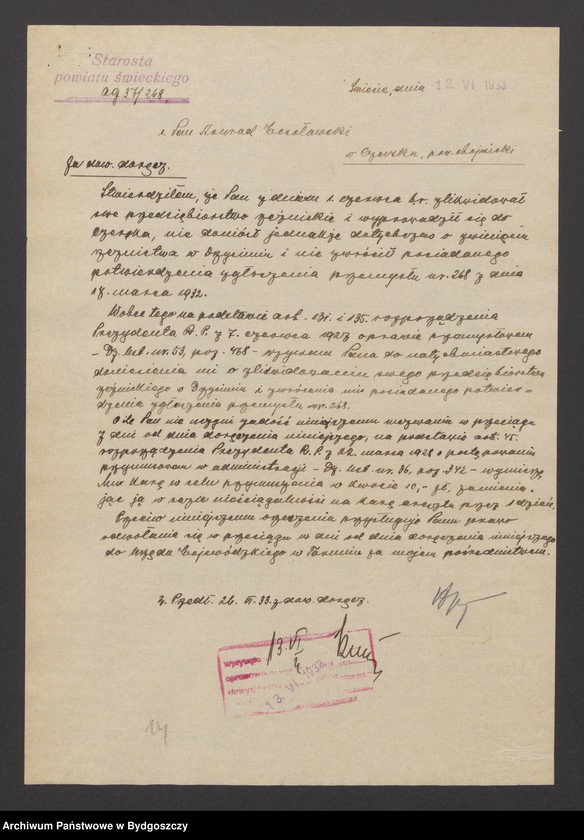 Starosta
powiatu świeckiego
ag 57/268
Świecie, dnia 12 VI 1933
1. Pan Konrad
w Czersku, pow. chojnicki
Za dow. doręcz.
Stwierdziłem, że Pan z dniem 1. czerwca br. zlikwidował
swe przedsiębiorstwo rzeźnickie i wyprowadził się do
Czerska, nie doniósł jednakże dotychczas o zwinięciu
rzeźnictwa w Drzycimiu i nie zwrócił posiadanego
potwierdzenia zgłoszenia przemysłu nr. 268 z dnia
marca 1932.
Wobec tego na podstawie art. 131. i 135. rozporządzenia
Prezydenta R.P. z 7. czerwca 1927 o prawie przemysłowem
- Dz. Ust. nr. 53, poz. 468 - wzywam Pana do natychmiastowego
doniesienia mi o zlikwidowaniu swego przedsiębiorstwa
rzeźnickiego w Drzycimiu i zwrócenia mi posiadanego potwier-
dzenia zgłoszenia przemysłu nr. 268.
O ile Pan nie uczyni zadość niniejszemu wezwaniu w przeciągu
7 dni od dnia doręczenia niniejszego, na podstawie art. 45.
rozporządzenia Prezydenta R.P. z 22. marca 1928 o postępowaniu
przymusowem w administracji - Dz. Ust. nr. 36, poz. 342 - wymierzę
Mu karę w celu przymuszenia w kwocie 10,- zł, zamienia-
jąc ją w razie nieściągalności na karę aresztu przez 1 dzień.
Przeciw niniejszemu orzeczeniu przysługuje Panu prawo
odwołania się w przeciągu 14 dni od dnia doręczenia niniejszego
do Urzędu Wojewódzkiego w Toruniu za mojem pośrednictwem.
2. Przedł. 26. VI. 33 z dow. doręcz.
13. VI
13. VI. 1933
Archiwum Państwowe w Bydgoszczy